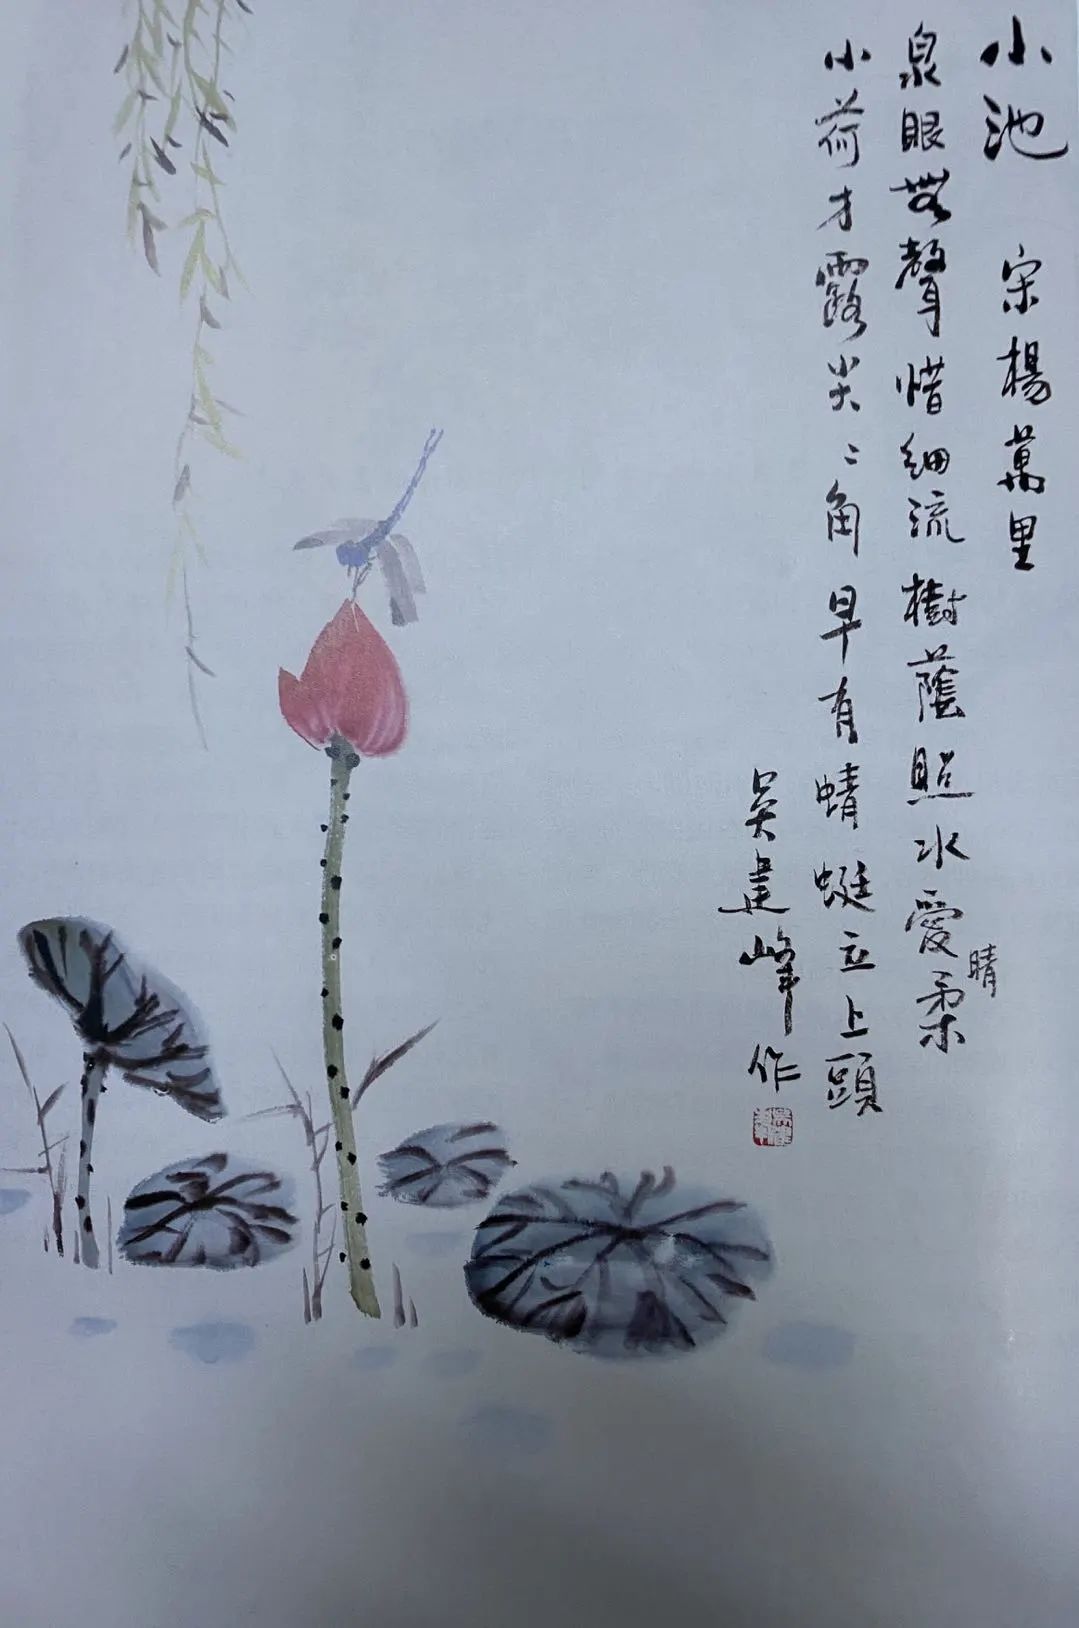 小池 宋 楊萬里
泉眼無聲惜細流樹蔭照水愛柔
晴
小荷才露尖〻角早有蜻蜓立上頭
吳建峰作